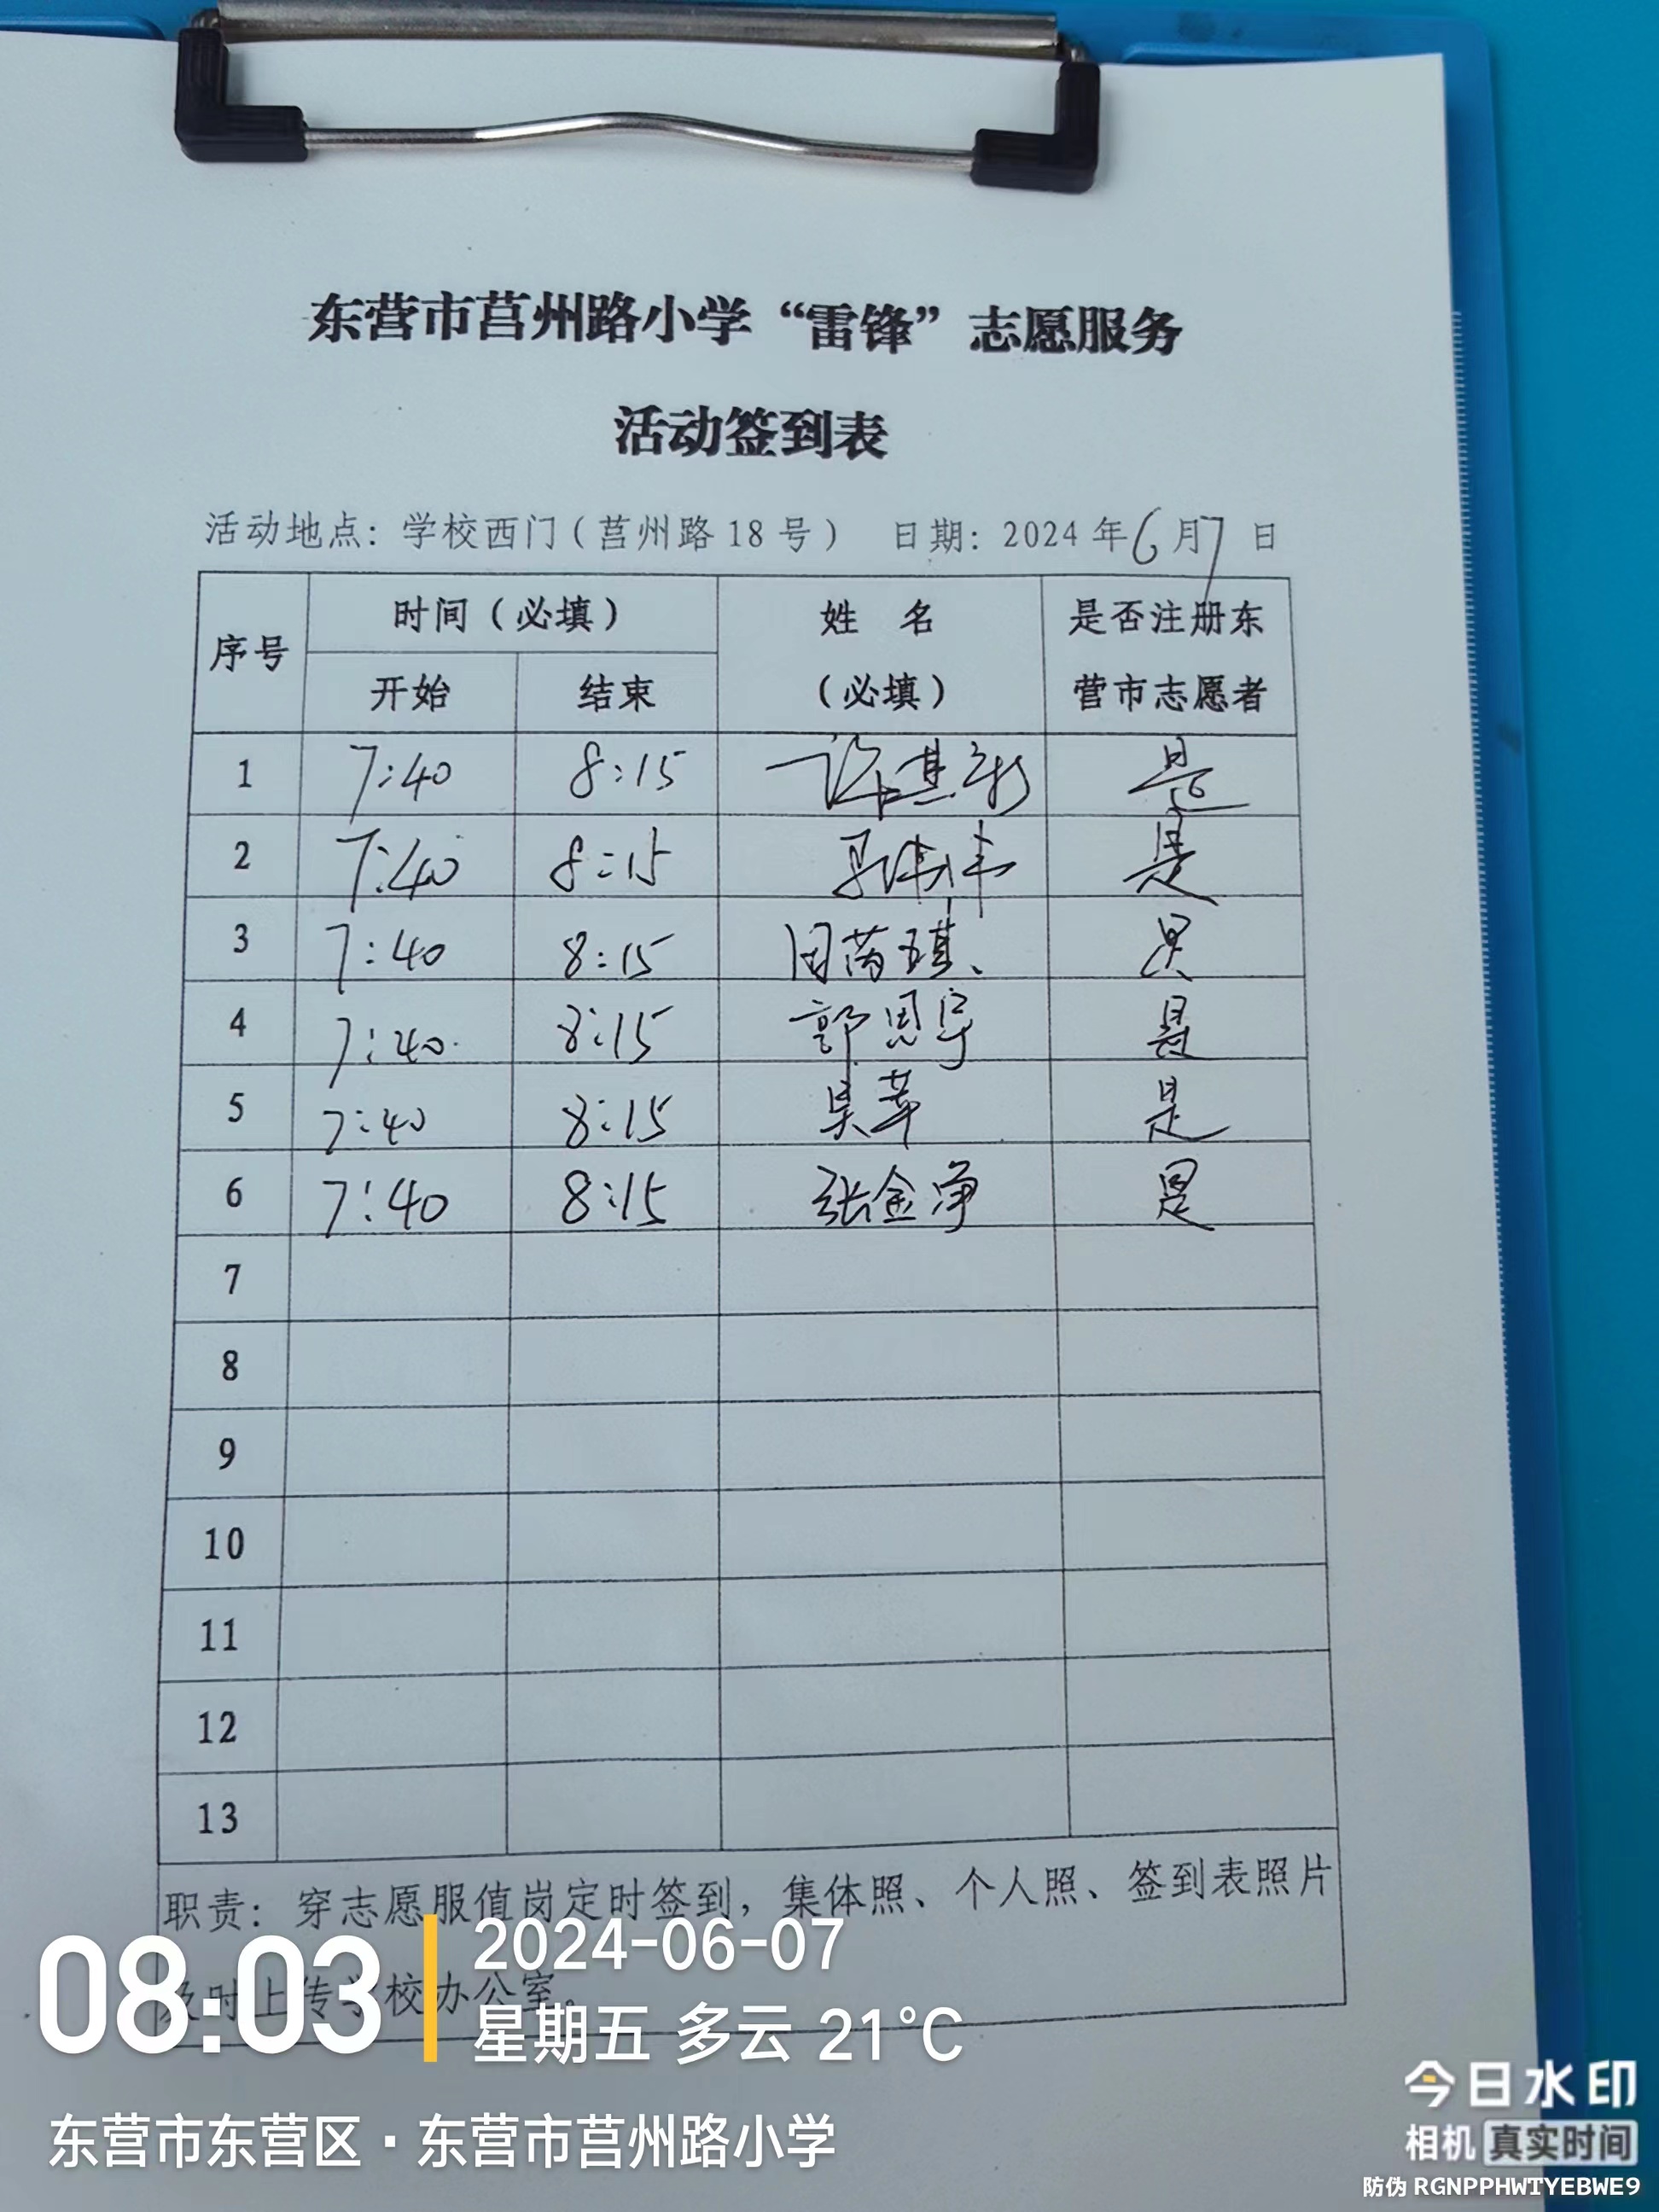 东营市莒州路小学“雷锋”志愿服务
活动签到表
活动地点：学校西门（莒州路18号） 日期：2024年6月7日
序号 时间（必填） 姓 名 是否注册东
开始 结束 （必填） 营市志愿者
1 7:40 8:15 是
2 7:40 8:15 是
3 7:40 8:15 是
4 7:40 8:15 郭恩宇 是
5 7:40 8:15 吴苹 是
6 7:40 8:15 张金净 是
7
8
9
10
11
12
13
职责：穿志愿服值岗定时签到，集体照、个人照、签到表照片
及时上传学校办公室。
08:03
2024-06-07
星期五 多云 21°C
东营市东营区·东营市莒州路小学
今日水印
相机 真实时间
防伪 RGNPPHWTYEBWE9